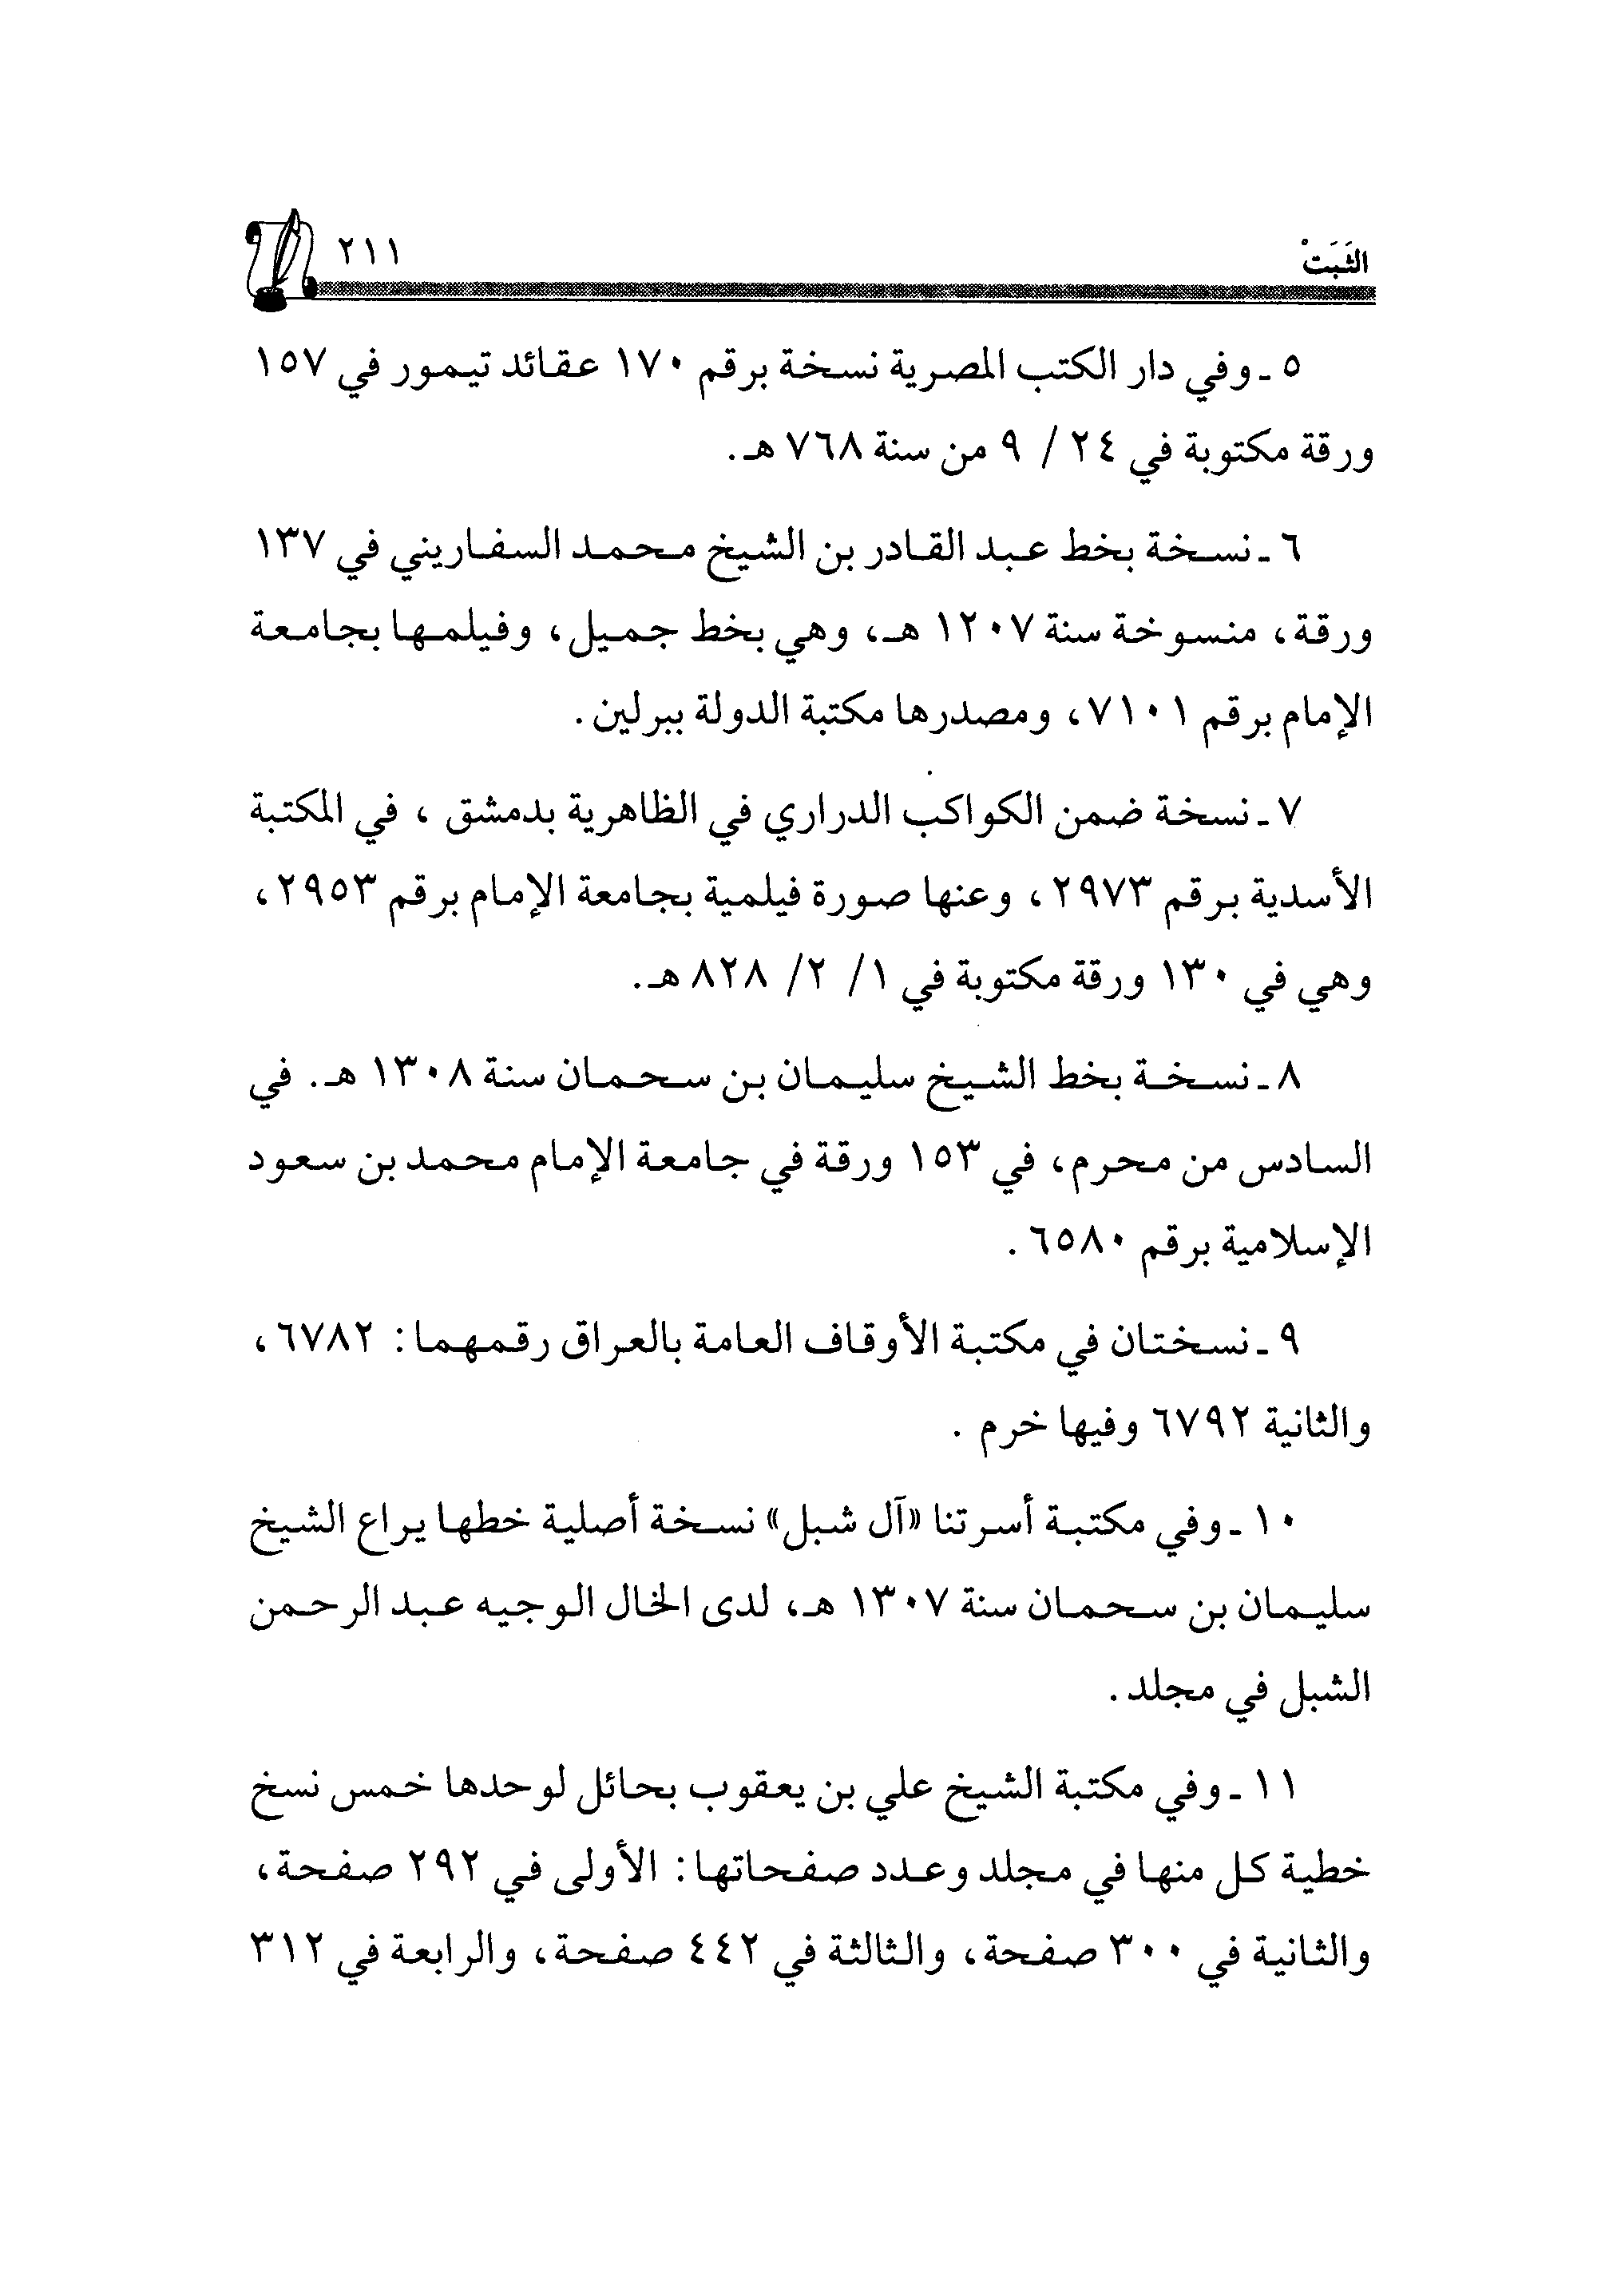 الثَّبَتْ ٢١١
٥ ـ وفي دار الكتب المصرية نسخة برقم ١٧٠ عقائد تيمور في ١٥٧
ورقة مكتوبة في ٢٤ / ٩ من سنة ٧٦٨ هـ.
٦ ـ نسخة بخط عبد القادر بن الشيخ محمد السفاريني في ١٣٧
ورقة، منسوخة سنة ١٢٠٧ هـ، وهي بخط جميل، وفيلمها بجامعة
الإمام برقم ٧١٠١، ومصدرها مكتبة الدولة ببرلين.
٧ ـ نسخة ضمن الكواكب الدراري في الظاهرية بدمشق ، في المكتبة
الأسدية برقم ٢٩٧٣ ، وعنها صورة فيلمية بجامعة الإمام برقم ٢٩٥٣،
وهي في ١٣٠ ورقة مكتوبة في ١/ ٢/ ٨٢٨ هـ.
٨ ـ نسخة بخط الشيخ سليمان بن سحمان سنة ١٣٠٨ هـ. في
السادس من محرم، في ١٥٣ ورقة في جامعة الإمام محمد بن سعود
الإسلامية برقم ٦٥٨٠ .
٩ ـ نسختان في مكتبة الأوقاف العامة بالعراق رقمهما: ٦٧٨٢،
والثانية ٦٧٩٢ وفيها خرم .
١٠ ـ وفي مكتبة أسرتنا «آل شبل» نسخة أصلية خطها يراع الشيخ
سليمان بن سحمان سنة ١٣٠٧ هـ، لدى الخال الوجيه عبد الرحمن
الشبل في مجلد .
١١ ـ وفي مكتبة الشيخ علي بن يعقوب بحائل لوحدها خمس نسخ
خطية كل منها في مجلد وعدد صفحاتها: الأولى في ٢٩٢ صفحة،
والثانية في ٣٠٠ صفحة، والثالثة في ٤٤٢ صفحة، والرابعة في ٣١٢